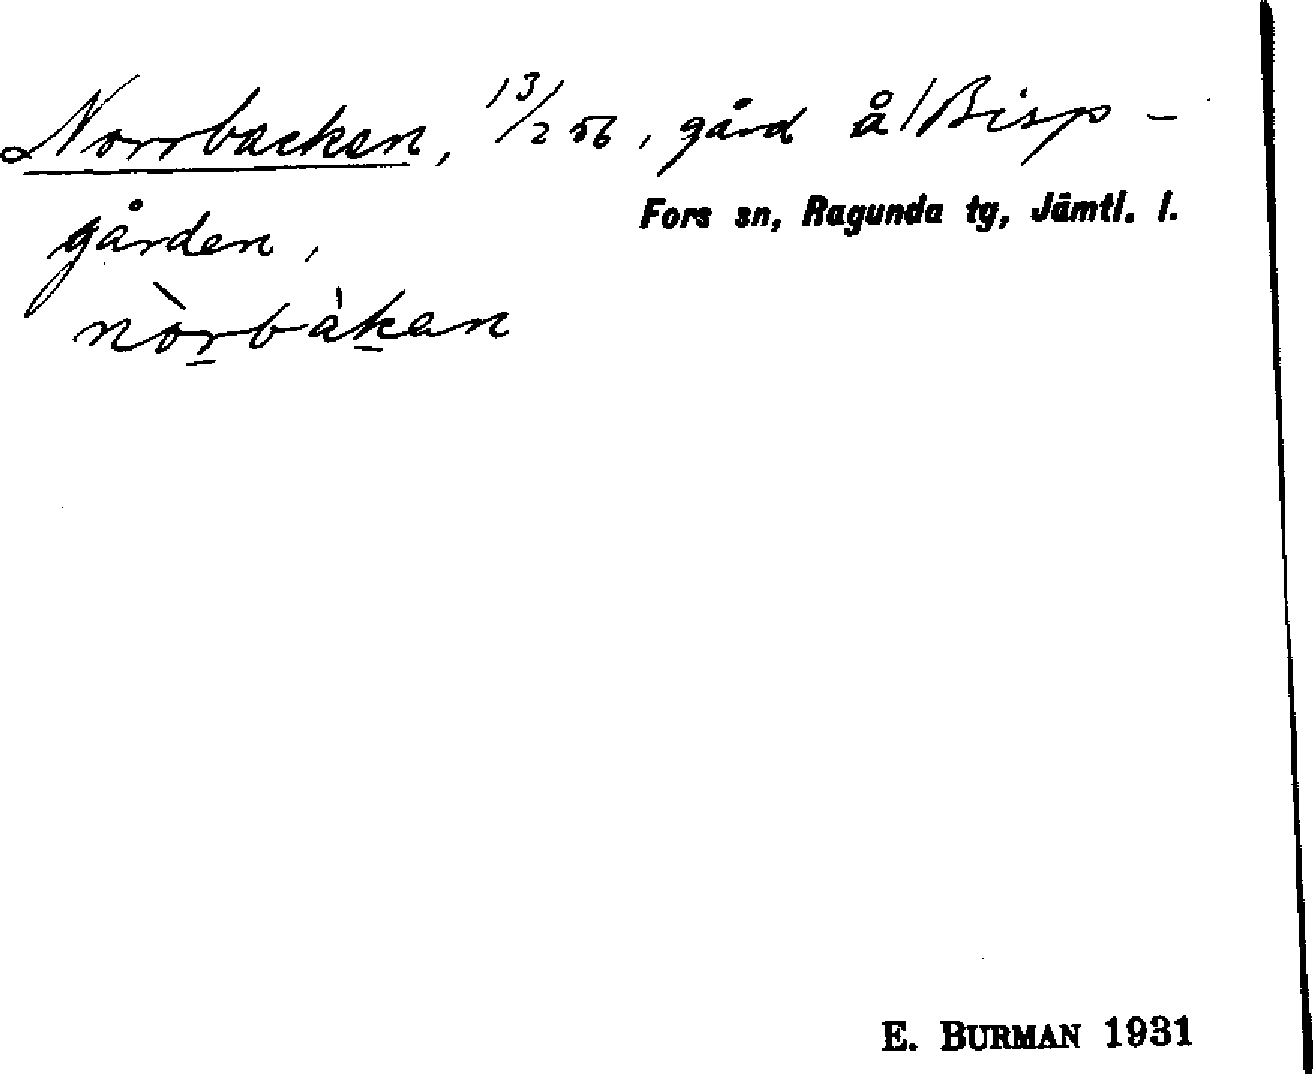 Norrbacken, 13/2 56, gård å/Bisp-
Fors sn, Ragunda tg, Jämtl. l.
gården,
nòrbàkan
E. BURMAN 1931